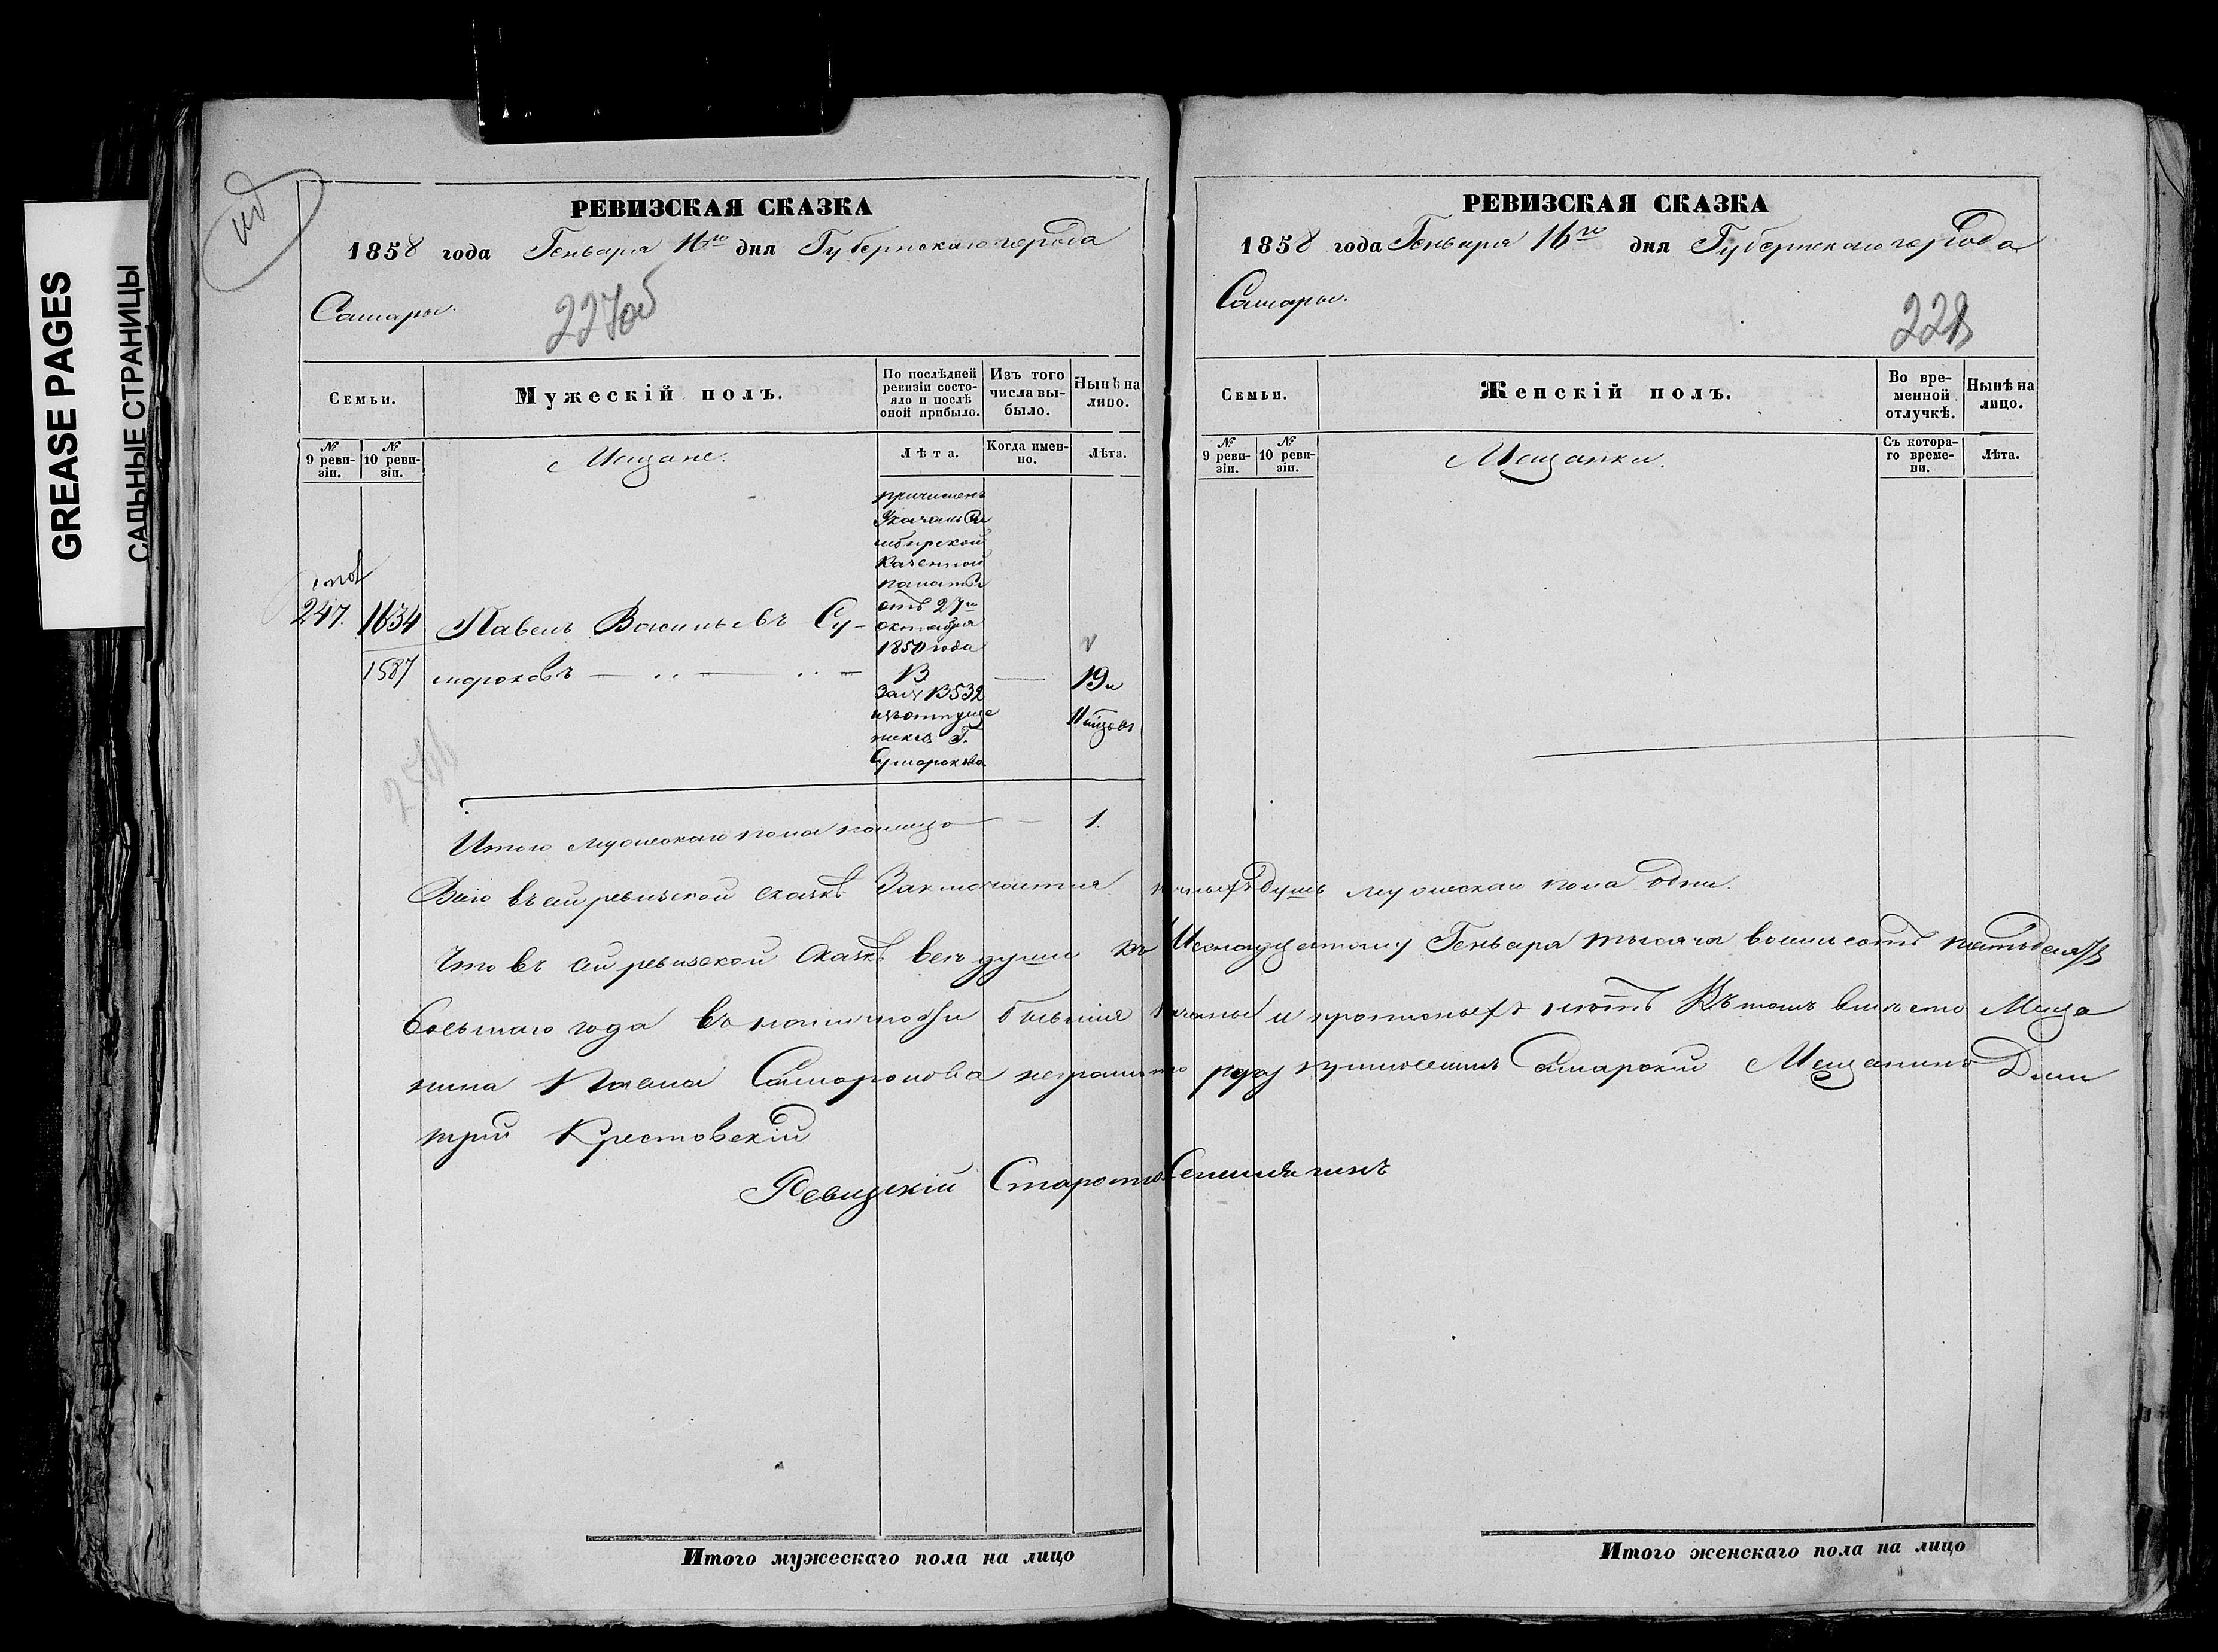 GREASE PAGES
САЛЬНЫЕ СТРАНИЦЫ
РЕВИЗСКАЯ СКАЗКА
1858 года Генваря 16го дня Губернскаго города
Самары.
227об
Семьи.
Мужескій полъ.
По послѣдней ревизіи состояло и послѣ оной прибыло.
Изъ того числа выбыло.
Нынѣ на лицо.
№ 9 ревизіи.
№ 10 ревизіи.
Мещане.
Лѣта.
Когда именно.
Лѣта.
причисленъ
Указомъ Си
мбирской
Казенной
палаты
отъ 27го
октября
1850 года
247. 1634 Павелъ Васильевъ Су-
1587 мароковъ
13
19 и
11 мѣсяцовъ
изъ отпуще
никовъ Г.
Сумарокова
Итого мужескаго пола налицо 1.
РЕВИЗСКАЯ СКАЗКА
1858 года Генваря 16го дня Губернскаго города
Самары.
228
Семьи.
Женскій полъ.
Во временной отлучкѣ.
Нынѣ на лицо.
№ 9 ревизіи.
№ 10 ревизіи.
Мещанки.
Съ котораго времени.
Лѣта.
Всего въ сей ревизской сказкѣ Заключается душъ мужескаго пола одна.
Что въ сей ревизской Сказкѣ всѣ души къ Шеснадцатому Генваря тысяча восемьсотъ пятьдесятъ
Восьмаго года въ наличности бывшия показаны и прописныхъ нѣтъ Въ томъ вмѣсто Меща
нина Павла Самарокова неграмотнаго руку приложилъ Самарскій Мещанинъ Дми
трий Крестовскій
Ревизскій Староста
Итого мужескаго пола на лицо
Итого женскаго пола на лицо